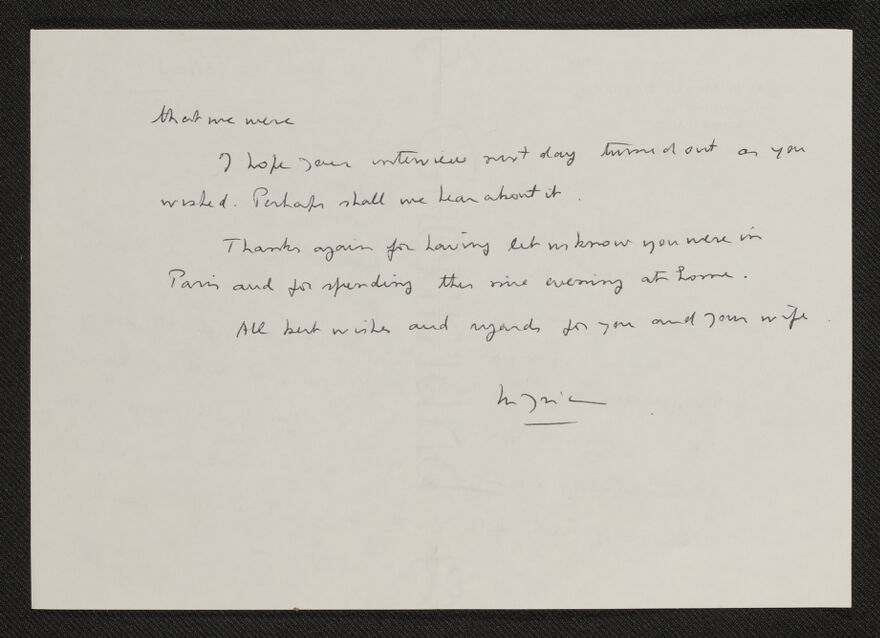 that we were
I hope your interview next day turned out as you
wished. Perhaps shall we hear about it.
Thanks again for having let us know you were in
Paris and for spending this nice evening at home.
All best wishes and regards for you and your wife